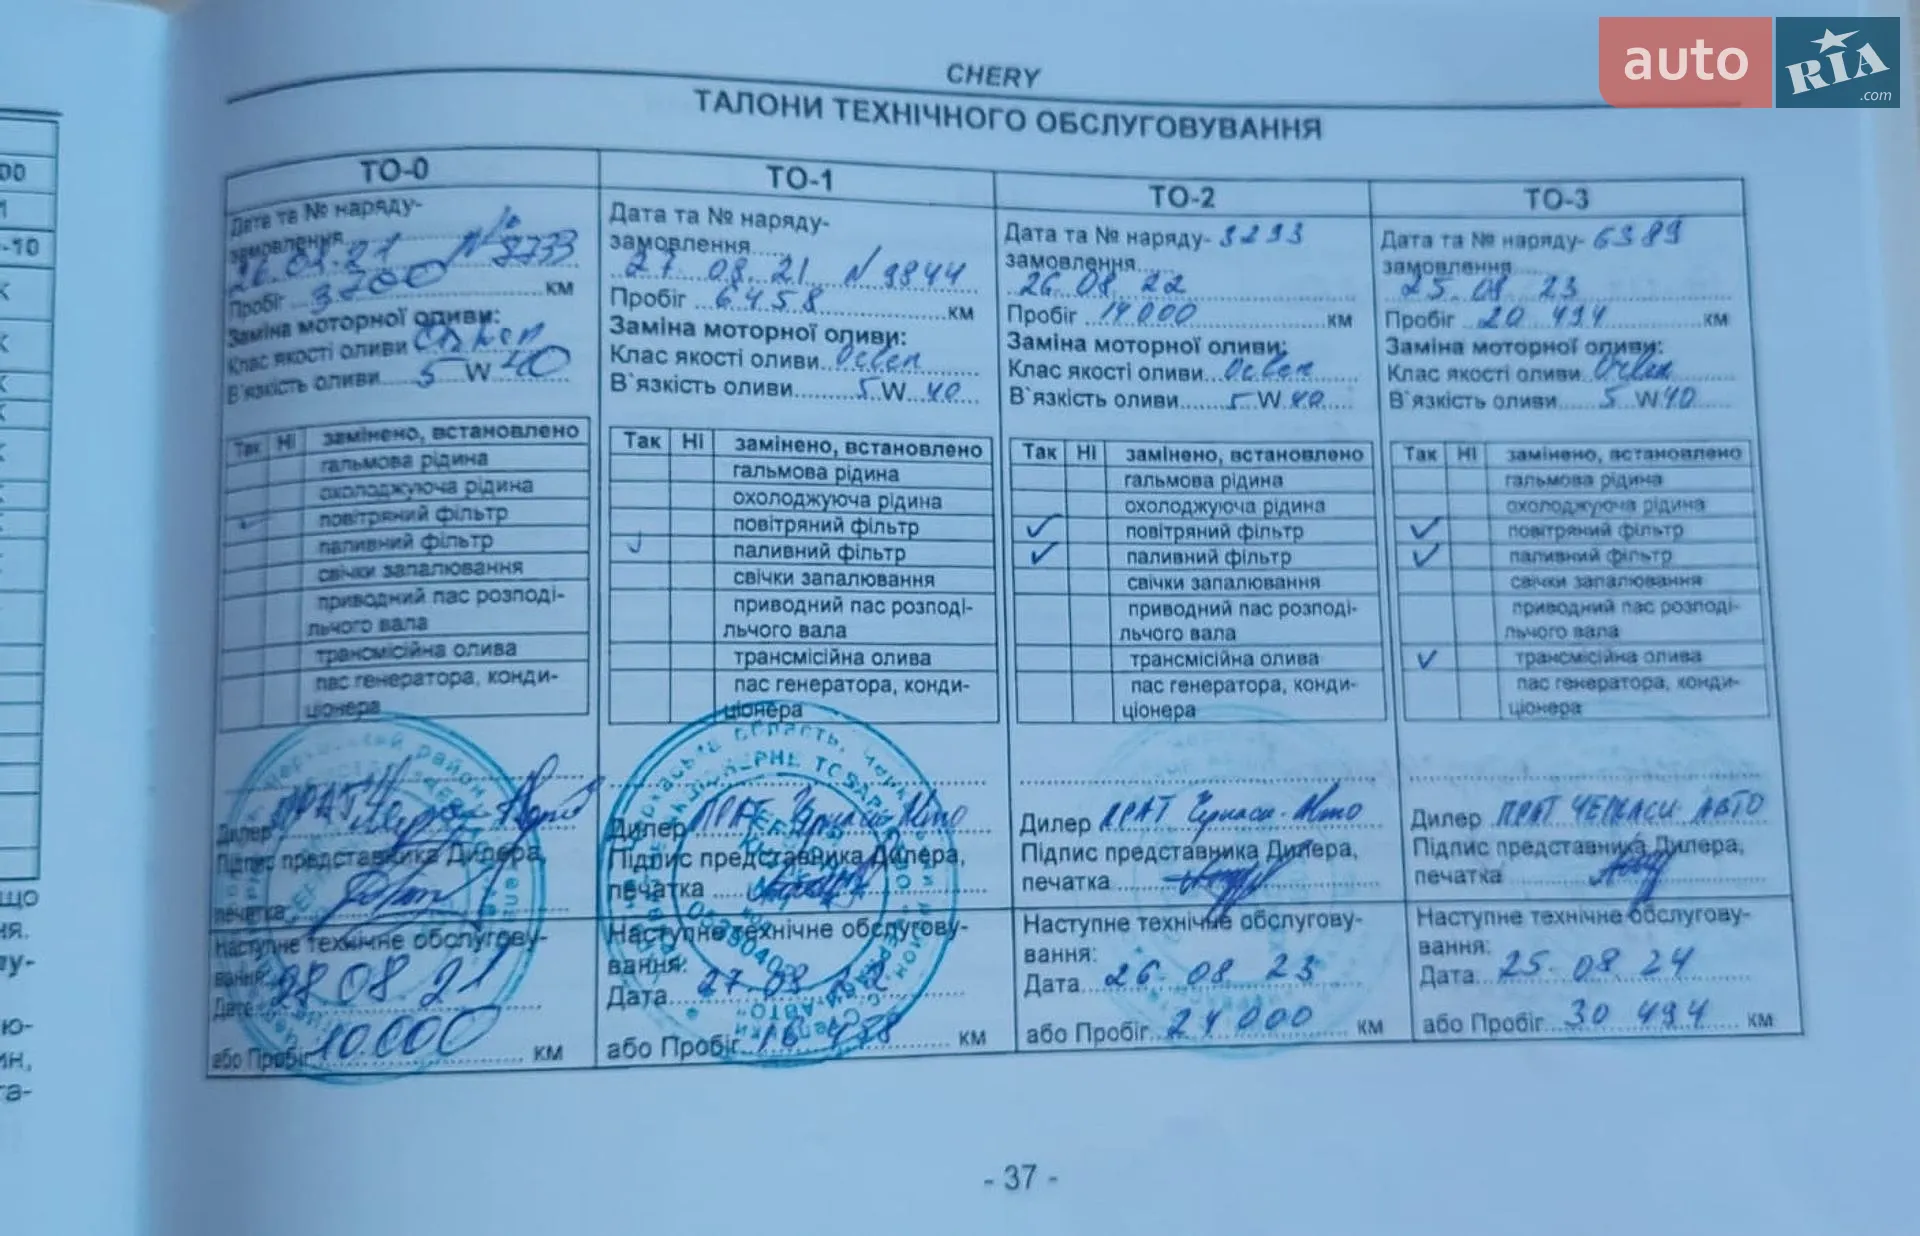 auto RIA .com
CHERY
ТАЛОНИ ТЕХНІЧНОГО ОБСЛУГОВУВАННЯ
ТО-0
Дата та № наряду-
замовлення
26.03.21 № 8733
Пробіг 3700 км
Заміна моторної оливи:
Клас якості оливи
В`язкість оливи 5 W 40
Так Ні замінено, встановлено
гальмова рідина
охолоджуюча рідина
повітряний фільтр
паливний фільтр
свічки запалювання
приводний пас розподі-
льчого вала
трансмісійна олива
пас генератора, конди-
ціонера
Дилер ПРАТ
Підпис представника Дилера,
печатка
Наступне технічне обслугову-
вання:
Дата 28 08 21
або Пробіг 10.000 км
ТО-1
Дата та № наряду-
замовлення
27 08 21 № 9844
Пробіг 6458 км
Заміна моторної оливи:
Клас якості оливи Orlen
В`язкість оливи 5 W 40
Так Ні замінено, встановлено
гальмова рідина
охолоджуюча рідина
повітряний фільтр
паливний фільтр
свічки запалювання
приводний пас розподі-
льчого вала
трансмісійна олива
пас генератора, конди-
ціонера
Дилер ПРАТ Черкаси Авто
Підпис представника Дилера,
печатка
Наступне технічне обслугову-
вання:
Дата 27.08.22
або Пробіг 16 458 км
ТО-2
Дата та № наряду- 3293
замовлення
26 08 22
Пробіг 14000 км
Заміна моторної оливи:
Клас якості оливи Orlen
В`язкість оливи 5 W 40
Так Ні замінено, встановлено
гальмова рідина
охолоджуюча рідина
✓ повітряний фільтр
✓ паливний фільтр
свічки запалювання
приводний пас розподі-
льчого вала
трансмісійна олива
пас генератора, конди-
ціонера
Дилер ПРАТ Черкаси-Авто
Підпис представника Дилера,
печатка
Наступне технічне обслугову-
вання:
Дата 26 08 23
або Пробіг 24 000 км
ТО-3
Дата та № наряду- 6389
замовлення
25 08 23
Пробіг 20 494 км
Заміна моторної оливи:
Клас якості оливи Orlen
В`язкість оливи 5 W 40
Так Ні замінено, встановлено
гальмова рідина
охолоджуюча рідина
✓ повітряний фільтр
✓ паливний фільтр
свічки запалювання
приводний пас розподі-
льчого вала
✓ трансмісійна олива
пас генератора, конди-
ціонера
Дилер ПРАТ ЧЕРКАСИ АВТО
Підпис представника Дилера,
печатка
Наступне технічне обслугову-
вання:
Дата 25.08 24
або Пробіг 30 494 км
- 37 -